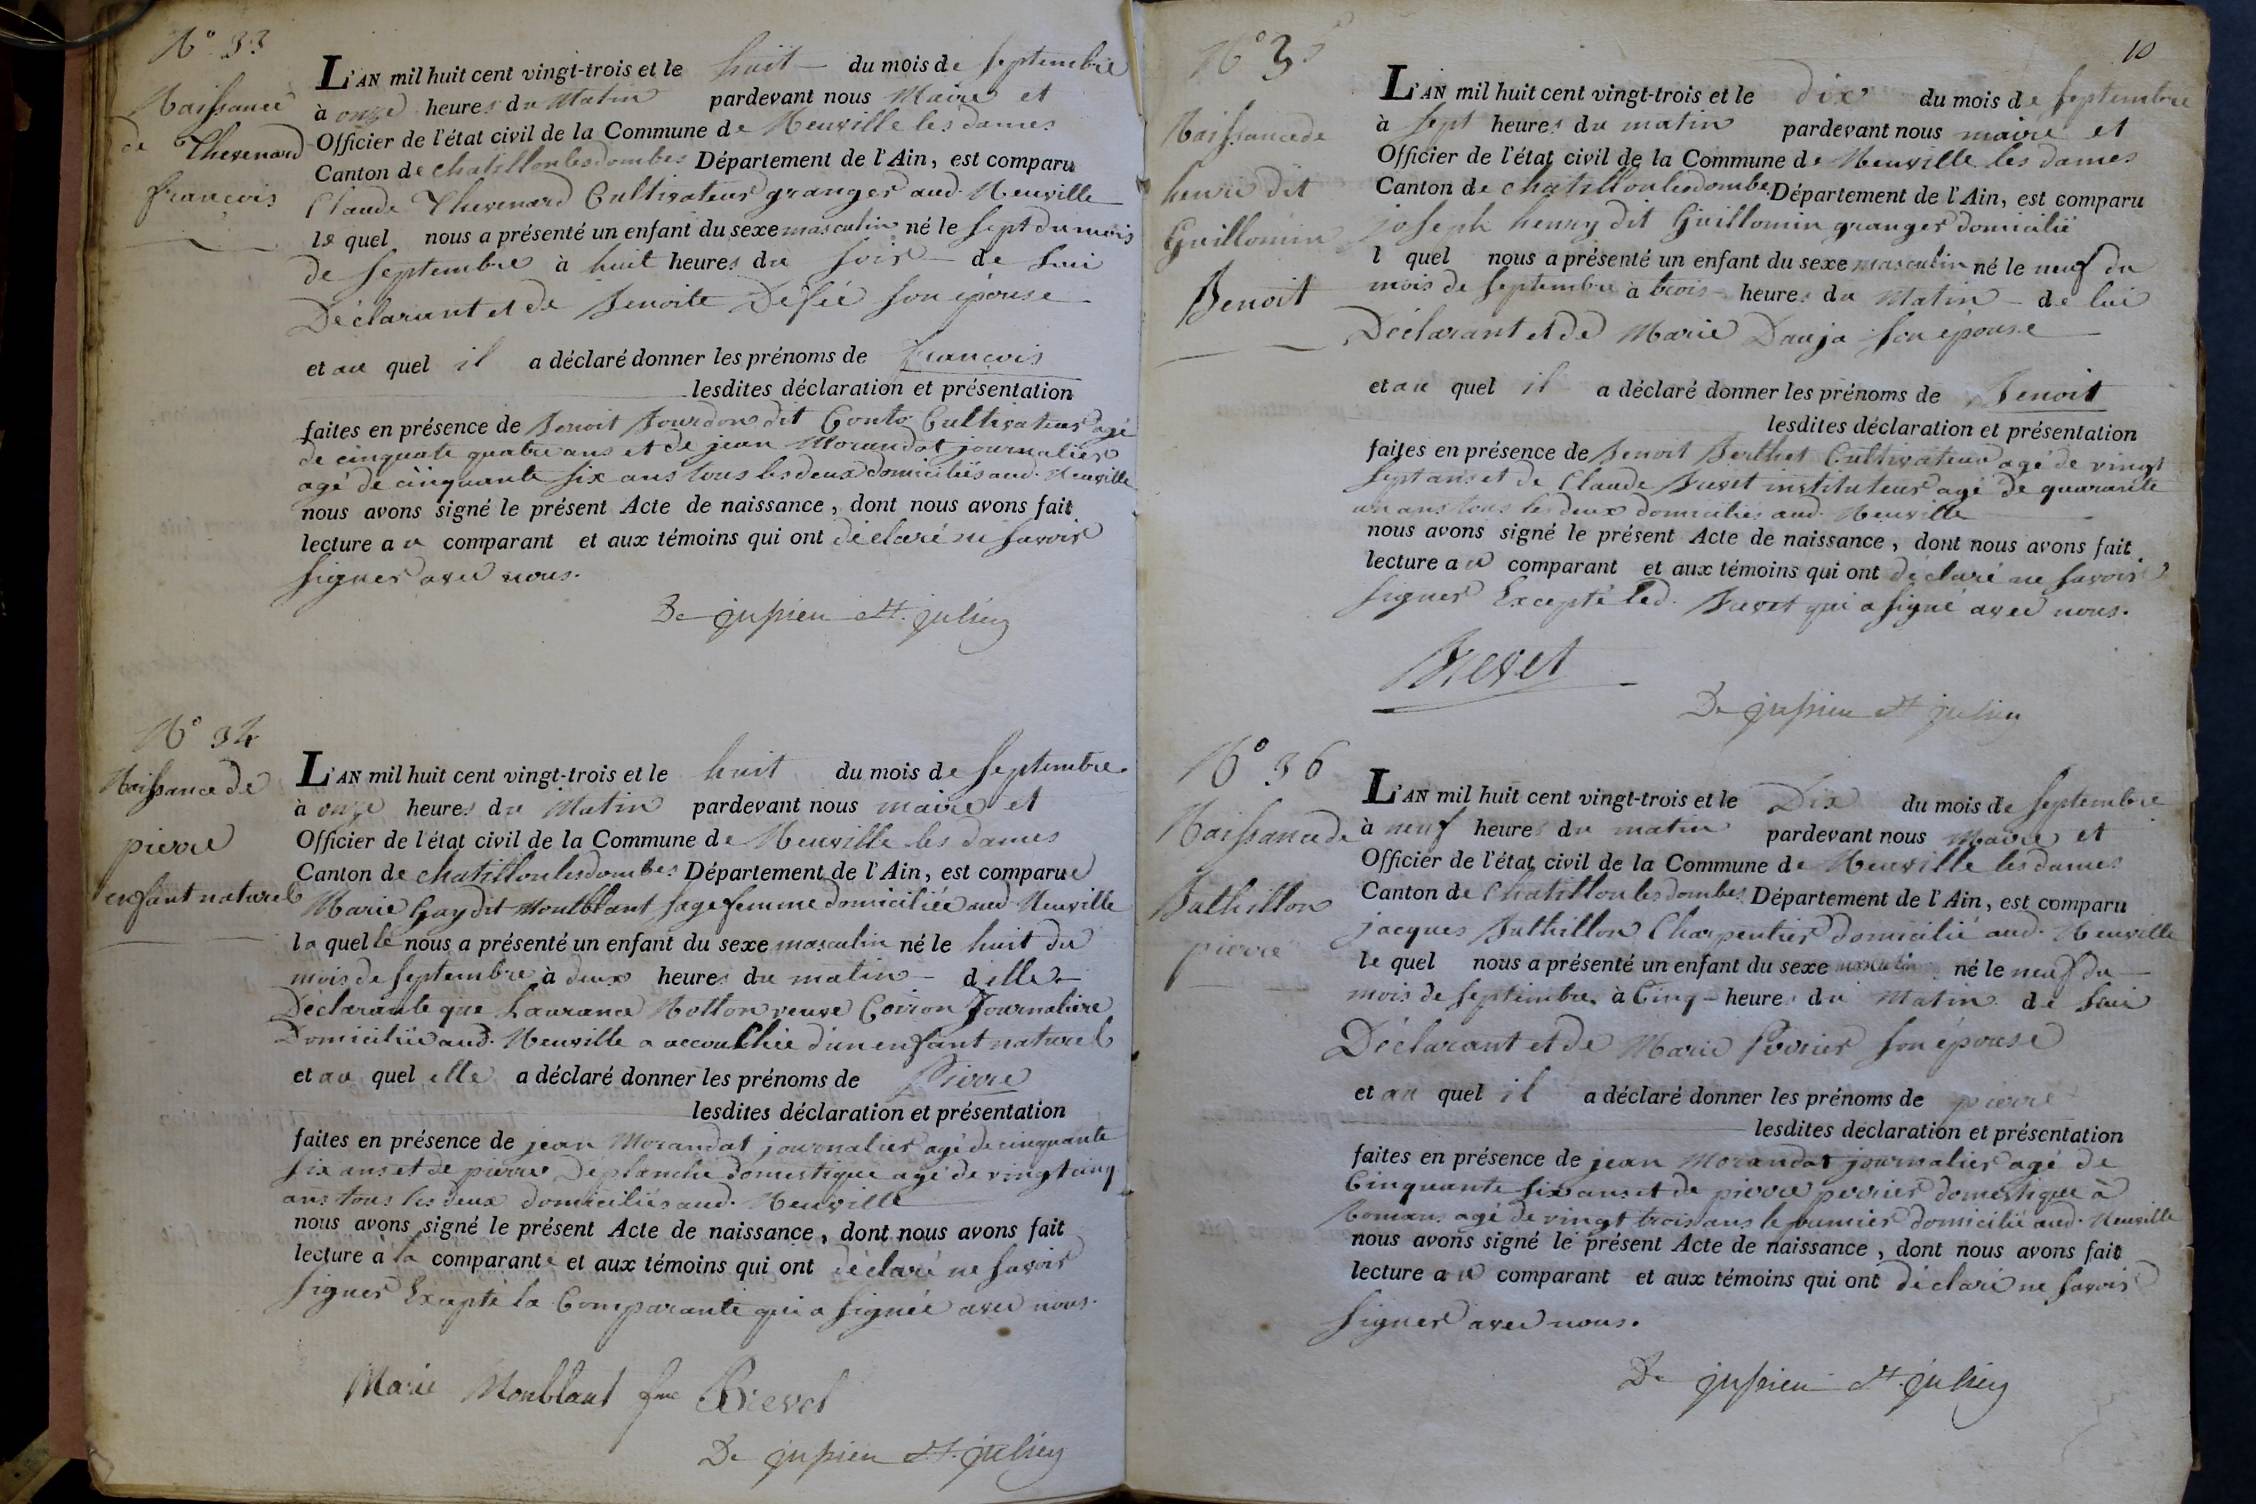 N.° 33
Naissance
de Thevenard
françois
L'AN mil huit cent vingt-trois et le huit du mois de septembre
à onze heures du Matin pardevant nous Maire et
Officier de l'état civil de la Commune de Neuville les dames
Canton de chatillon les dombes Département de l'Ain, est comparu
Claude Thevenard Cultivateur granger aud. Neuville
le quel nous a présenté un enfant du sexe masculin né le sept du mois
de septembre à huit heures du soir de Lui
Déclarant et de Benoite son épouse
et au quel il a déclaré donner les prénoms de françois
lesdites déclaration et présentation
faites en présence de Benoit Bourdon dit Conto Cultivateur agé
de cinquate quatre ans et de jean Morandat journalier
agé de cinquante six ans tous les deux domiciliés aud. Neuville
nous avons signé le présent Acte de naissance, dont nous avons fait
lecture au comparant et aux témoins qui ont déclaré ne savoir
signer avec nous.
De jussieu St. julien
N° 34
Naissance de
pierre
enfant naturel
L'AN mil huit cent vingt-trois et le huit du mois de septembre
à onze heures du Matin pardevant nous maire et
Officier de l'état civil de la Commune de Neuville les dames
Canton de chatillon les dombes Département de l'Ain, est comparue
Marie Gay dit Montblant sage femme domiciliée aud. Neuville
la quelle nous a présenté un enfant du sexe masculin né le huit du
mois de septembre à deux heures du matin d'elle
Déclarante que Laurance Motton veuve Coiron Journalière
Domiciliée aud. Neuville a accouchée d'un enfant naturel
et au quel elle a déclaré donner les prénoms de Pierre
lesdites déclaration et présentation
faites en présence de jean Morandat journalier agé de cinquante
six ans et de pierre Deplanche domestique agé de vingt cinq
ans tous les deux domiciliés aud. Neuville
nous avons signé le présent Acte de naissance, dont nous avons fait
lecture à la comparante et aux témoins qui ont déclaré ne savoir
signer Excepté la Comparante qui a signée avec nous.
Marie Monblant fme Brevet
De jussieu St. julien
10
N° 35
Naissance de
henri dit
Guillomin
Benoit
L'AN mil huit cent vingt-trois et le dix du mois de septembre
à sept heures du matin pardevant nous maire et
Officier de l'état civil de la Commune de Neuville les dames
Canton de chatillon les dombes Département de l'Ain, est comparu
joseph henry dit Guillomin granger domicilié
l quel nous a présenté un enfant du sexe masculin né le neuf du
mois de septembre à trois heures du Matin de lui
Déclarant et de Marie Dauja son épouse
et au quel il a déclaré donner les prénoms de Benoit
lesdites déclaration et présentation
faites en présence de Benoit Berthet Cultivateur agé de vingt
sept ans et de Claude Brevet instituteur agé de quarante
un ans tous les deux domiciliés aud. Neuville
nous avons signé le présent Acte de naissance, dont nous avons fait
lecture au comparant et aux témoins qui ont déclaré ne savoir
signer Excepté led. Brevet qui a signé avec nous.
Brevet
De jussieu St julien
N° 36
Naissance de
Buthillon
pierre
L'AN mil huit cent vingt-trois et le Dix du mois de septembre
à neuf heures du matin pardevant nous Maire et
Officier de l'état civil de la Commune de Neuville les dames
Canton de Chatillon les dombes Département de l'Ain, est comparu
jacques Buthillon Charpentier domicilié aud. Neuville
le quel nous a présenté un enfant du sexe masculin né le neuf du
mois de septembre à Cinq heures du Matin de Lui
Déclarant et de Marie Perrier son épouse
et au quel il a déclaré donner les prénoms de pierre
lesdites déclaration et présentation
faites en présence de jean Morandat journalier agé de
Cinquante six ans et de pierre perrier domestique à
Romans agé de vingt trois ans le premier domicilié aud. Neuville
nous avons signé le présent Acte de naissance, dont nous avons fait
lecture au comparant et aux témoins qui ont déclaré ne savoir
signer avec nous.
De jussieu St. julien